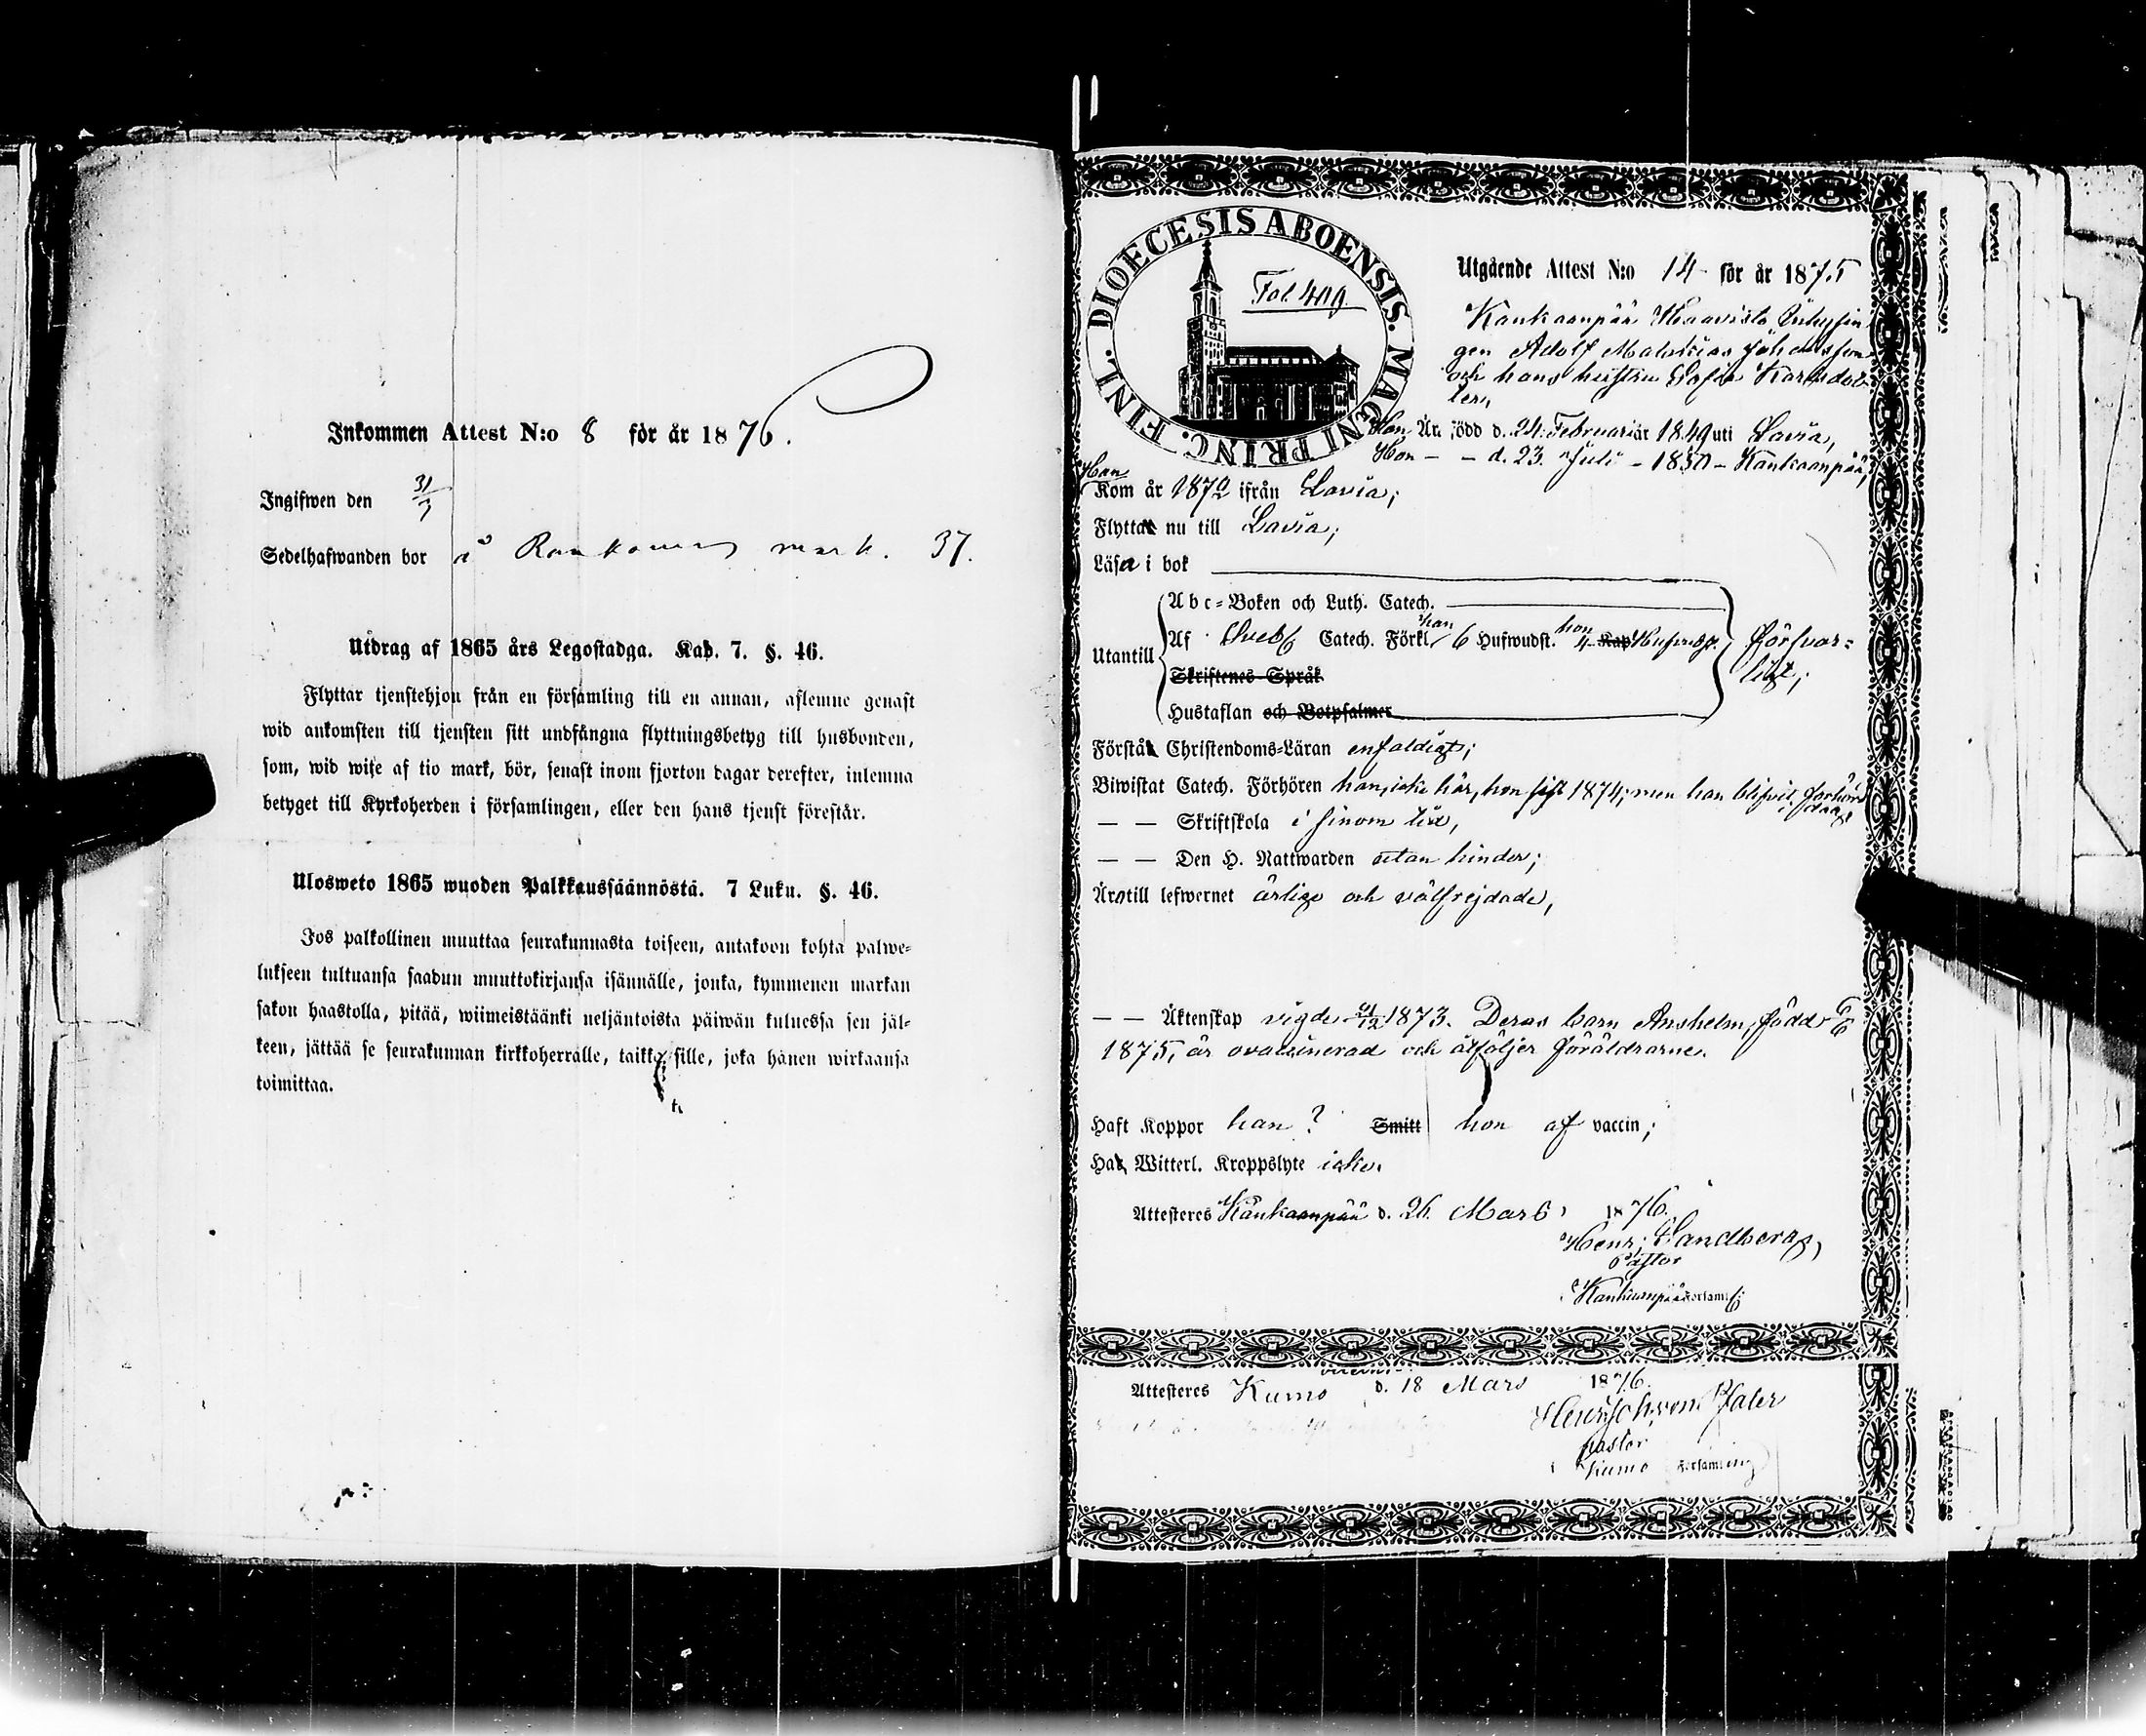 Inkommen Attest N:o 8 för år 1876.
Ingifwen den 31/3
Sedelhafwanden bor å mark. 37.
Utdrag af 1865 års Legostadga. Kap. 7. §. 46.
Flyttar tjenstehjon från en församling till en annan, aflemne genast
wid ankomsten till tjensten sitt undfångna flyttningsbetyg till husbonden,
som, wid wite af tio mark, bör, senast inom fjorton dagar derefter, inlemna
betyget till Kyrkoherden i församlingen, eller den hans tjenst förestår.
Ulosweto 1865 wuoden Palkkaussäännöstä. 7 Luku. §. 46.
Jos palkollinen muuttaa seurakunnasta toiseen, antakoon kohta palwe-
lukseen tultuansa saadun muuttokirjansa isännälle, jonka, kymmenen markan
sakon haastolla, pitää, wiimeistäänki neljäntoista päiwän kuluessa sen jäl-
keen, jättää se seurakunnan kirkkoherralle, taikka sille, joka hänen wirkaansa
toimittaa.
DIOECESIS ABOENSIS. MAGNI PRINC. FINL.
Fol. 409.
Utgående Attest N:o 14 för år 1875
Kankaanpää Haavisto Inhysin
gen Adolf Malakias Johansson
och hans hustru Sofia Karlsdot
ter,
Han Är född d. 24. Februari år 1849 uti Lavia,
Hon — — d. 23. Juli — 1850 — Kankaanpää,
Han
Kom år 1870 ifrån Lavia;
Flytta nu till Lavia;
Läsa i bok
Utantill
Abc-Boken och Luth. Catech.
Af Sveb. Catech. Förkl. han 6 Hufwudst. hon 4 Kap Hufvudst.
Skriftenes Språk
Hustaflan och Botpsalmer
försvar-
ligt;
Förstå Christendoms-Läran enfaldigt;
Biwistat Catech. Förhören han icke här, hon sist 1874; men han blifvit förhörd
— — Skriftskola i sinom tid,
— — Den H. Nattwarden utan hinder;
Äro till lefwernet ärliga och välfrejdade,
— — Äktenskap vigde 21/12 1873. Deras barn Anshelm, född 6/6
1875, är ovaccinerad och åtföljer föräldrarne.
Haft Koppor han? Smitt hon af vaccin;
Ha Witterl. Kroppslyte icke.
Attesteres Kankaanpää d. 26. Mars 1876.
Henr. Sandberg,
Pastor
Kankaanpää Församl.
Attesteres Kumo d. 18 Mars 1876.
Henrik von Pfaler
pastor
Kumo Församling